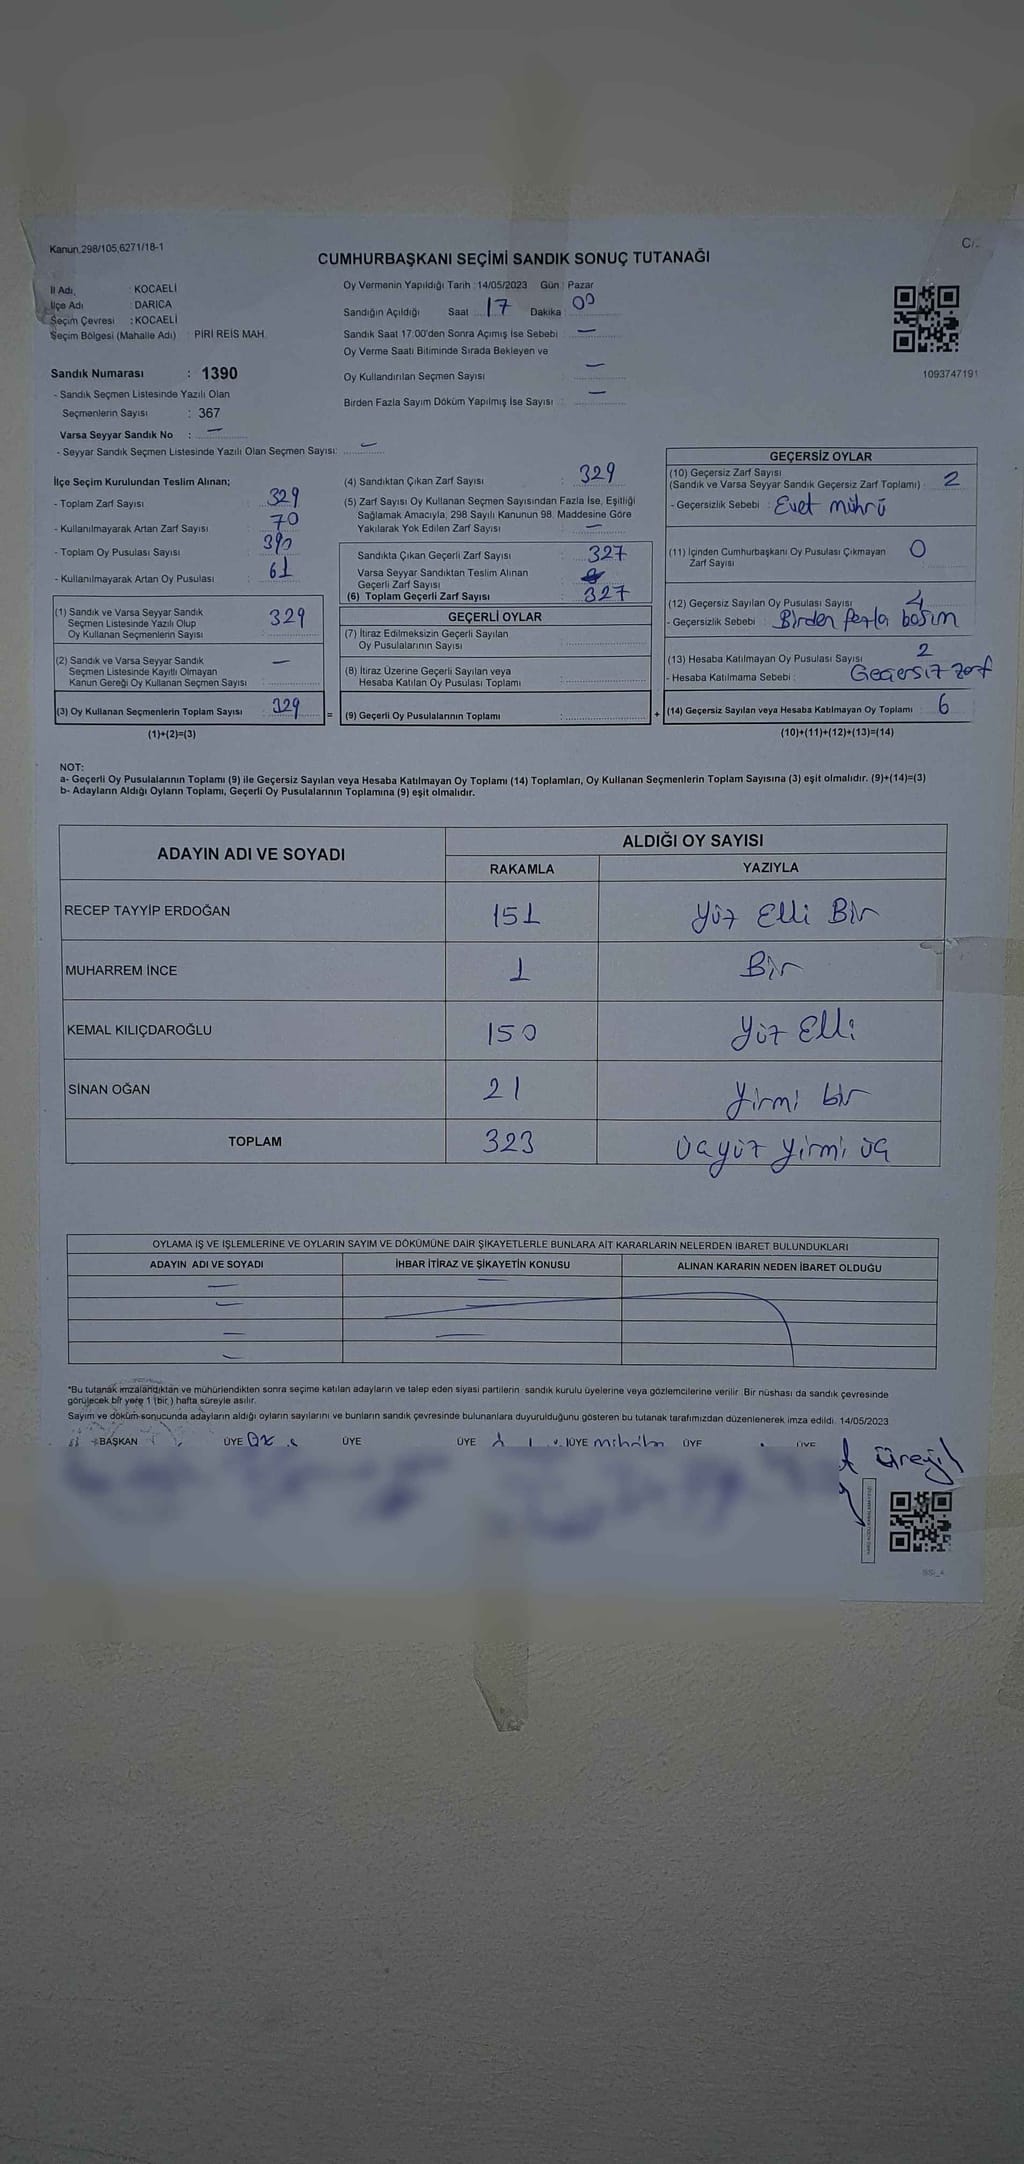 Kanun.298/105,6271/18-1
CUMHURBAŞKANI SEÇİMİ SANDIK SONUÇ TUTANAĞI
İl Adı : KOCAELİ
İlçe Adı : DARICA
Seçim Çevresi : KOCAELİ
Seçim Bölgesi (Mahalle Adı) : PİRİ REİS MAH.
Oy Vermenin Yapıldığı Tarih : 14/05/2023 Gün : Pazar
Sandığın Açıldığı Saat 17 Dakika 00
Sandık Saat 17:00'den Sonra Açımış İse Sebebi : —
Oy Verme Saati Bitiminde Sırada Bekleyen ve
Oy Kullandırılan Seçmen Sayısı : —
Birden Fazla Sayım Döküm Yapılmış İse Sayısı : —
1093747191
Sandık Numarası : 1390
- Sandık Seçmen Listesinde Yazılı Olan
Seçmenlerin Sayısı : 367
Varsa Seyyar Sandık No : —
- Seyyar Sandık Seçmen Listesinde Yazılı Olan Seçmen Sayısı: —
İlçe Seçim Kurulundan Teslim Alınan;
- Toplam Zarf Sayısı : 329
- Kullanılmayarak Artan Zarf Sayısı : 70
- Toplam Oy Pusulası Sayısı : 390
- Kullanılmayarak Artan Oy Pusulası : 61
(1) Sandık ve Varsa Seyyar Sandık
Seçmen Listesinde Yazılı Olup
Oy Kullanan Seçmenlerin Sayısı : 329
(2) Sandık ve Varsa Seyyar Sandık
Seçmen Listesinde Kayıtlı Olmayan
Kanun Gereği Oy Kullanan Seçmen Sayısı : —
(3) Oy Kullanan Seçmenlerin Toplam Sayısı : 329
(1)+(2)=(3)
(4) Sandıktan Çıkan Zarf Sayısı : 329
(5) Zarf Sayısı Oy Kullanan Seçmen Sayısından Fazla İse, Eşitliği
Sağlamak Amacıyla; 298 Sayılı Kanunun 98. Maddesine Göre
Yakılarak Yok Edilen Zarf Sayısı : —
Sandıkta Çıkan Geçerli Zarf Sayısı : 327
Varsa Seyyar Sandıktan Teslim Alınan
Geçerli Zarf Sayısı :
(6) Toplam Geçerli Zarf Sayısı : 327
GEÇERLİ OYLAR
(7) İtiraz Edilmeksizin Geçerli Sayılan
Oy Pusulalarının Sayısı :
(8) İtiraz Üzerine Geçerli Sayılan veya
Hesaba Katılan Oy Pusulası Toplamı :
= (9) Geçerli Oy Pusulalarının Toplamı :
GEÇERSİZ OYLAR
(10) Geçersiz Zarf Sayısı
(Sandık ve Varsa Seyyar Sandık Geçersiz Zarf Toplamı) : 2
- Geçersizlik Sebebi : Evet mührü
(11) İçinden Cumhurbaşkanı Oy Pusulası Çıkmayan
Zarf Sayısı : 0
(12) Geçersiz Sayılan Oy Pusulası Sayısı : 4
- Geçersizlik Sebebi : Birden fazla basım
(13) Hesaba Katılmayan Oy Pusulası Sayısı : 2
- Hesaba Katılmama Sebebi : Geçersiz zarf
+ (14) Geçersiz Sayılan veya Hesaba Katılmayan Oy Toplamı : 6
(10)+(11)+(12)+(13)=(14)
NOT:
a- Geçerli Oy Pusulalarının Toplamı (9) ile Geçersiz Sayılan veya Hesaba Katılmayan Oy Toplamı (14) Toplamları, Oy Kullanan Seçmenlerin Toplam Sayısına (3) eşit olmalıdır. (9)+(14)=(3)
b- Adayların Aldığı Oyların Toplamı, Geçerli Oy Pusulalarının Toplamına (9) eşit olmalıdır.
ADAYIN ADI VE SOYADI
ALDIĞI OY SAYISI
RAKAMLA YAZIYLA
RECEP TAYYİP ERDOĞAN 151 Yüz Elli Bir
MUHARREM İNCE 1 Bir
KEMAL KILIÇDAROĞLU 150 Yüz Elli
SİNAN OĞAN 21 Yirmi bir
TOPLAM 323 Üçyüz yirmi üç
OYLAMA İŞ VE İŞLEMLERİNE VE OYLARIN SAYIM VE DÖKÜMÜNE DAİR ŞİKAYETLERLE BUNLARA AİT KARARLARIN NELERDEN İBARET BULUNDUKLARI
ADAYIN ADI VE SOYADI İHBAR İTİRAZ VE ŞİKAYETİN KONUSU ALINAN KARARIN NEDEN İBARET OLDUĞU
*Bu tutanak imzalandıktan ve mühürlendikten sonra seçime katılan adayların ve talep eden siyasi partilerin sandık kurulu üyelerine veya gözlemcilerine verilir. Bir nüshası da sandık çevresinde
görülecek bir yere 1 (bir ) hafta süreyle asılır.
Sayım ve döküm sonucunda adayların aldığı oyların sayılarını ve bunların sandık çevresinde bulunanlara duyurulduğunu gösteren bu tutanak tarafımızdan düzenlenerek imza edildi. 14/05/2023
BAŞKAN ÜYE ÜYE ÜYE ÜYE ÜYE ÜYE